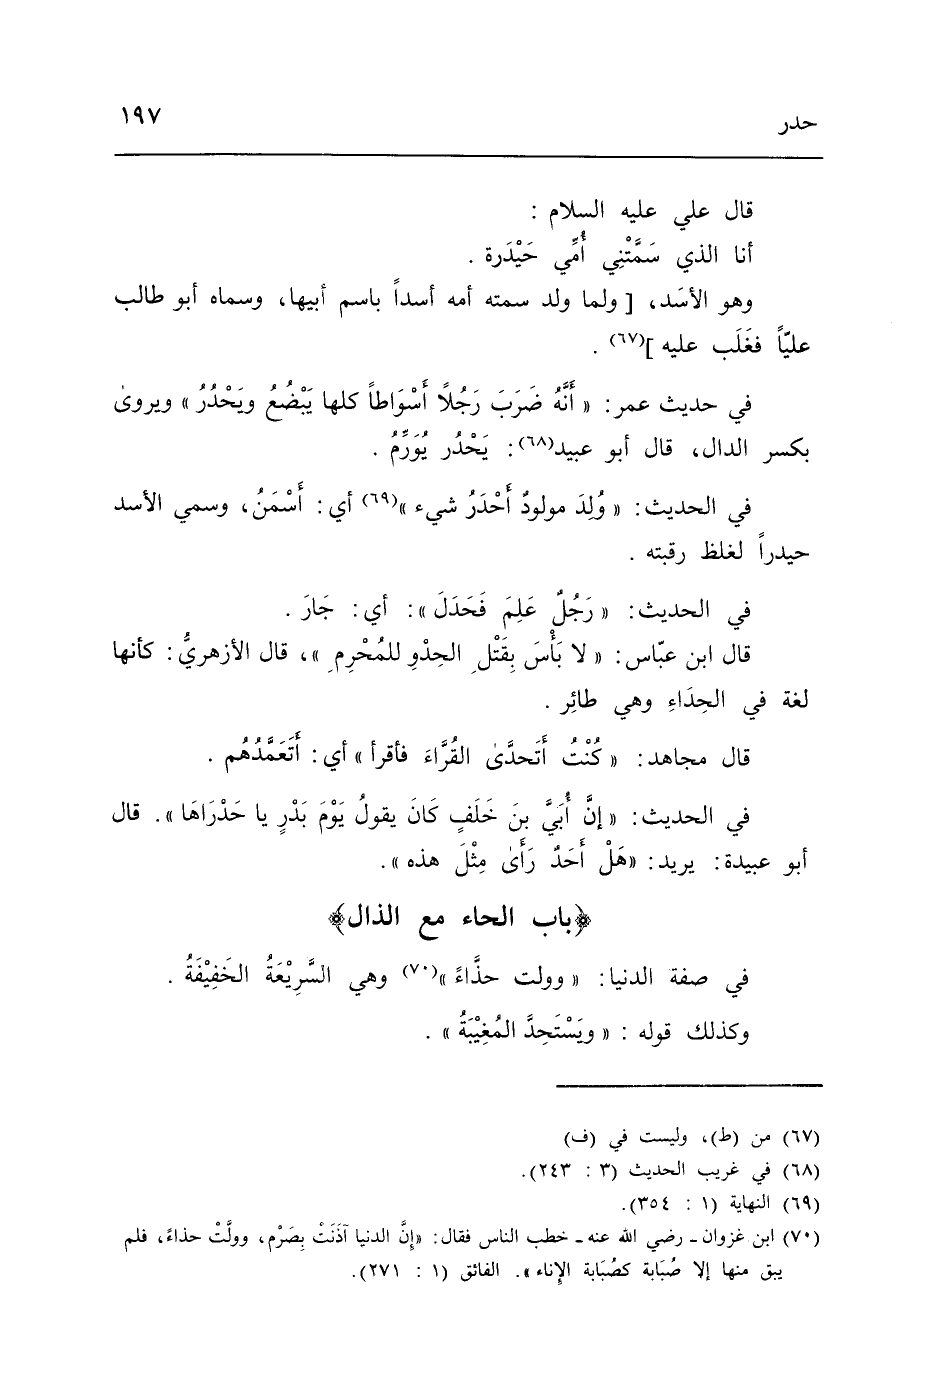 حدر ١٩٧
قال علي عليه السلام :
أنا الذي سَمَّتْنِي أُمِّي حَيْدَرة .
وهو الأسَد، [ ولما ولد سمته أمه أسداً باسم أبيها، وسماه أبو طالب
عليّاً فغَلَب عليه ](٦٧) .
في حديث عمر: « أَنَّهُ ضَرَبَ رَجُلاً أَسْوَاطاً كلها يَبْضُعُ ويَحْدُرُ » ويروىٰ
بكسر الدال، قال أبو عبيد(٦٨): يَحْدُر يُوَرِّمُ .
في الحديث: « وُلِدَ مولودٌ أَحْدَرُ شيء »(٦٩) أي: أَسْمَنُ، وسمي الأسد
حيدراً لغلظ رقبته .
في الحديث: « رَجُلٌ عَلِمَ فَحَدَلَ »: أي: جَارَ .
قال ابن عبّاس: « لا بَأْسَ بِقَتْلِ الحِدْوِ للمُحْرِمِ »، قال الأزهريُّ: كأنها
لغة في الحِدَاءِ وهي طائِر .
قال مجاهد: « كُنْتُ أَتَحدَّىٰ القُرَّاءَ فأقرأ » أي: أَتَعَمَّدُهُم .
في الحديث: « إنَّ أُبَيَّ بنَ خَلَفٍ كَانَ يقولُ يَوْمَ بَدْرٍ يا حَدْرَاهَا ». قال
أبو عبيدة: يريد: «هَلْ أَحَدٌ رَأَىٰ مِثْلَ هذه ».
﴿باب الحاء مع الذال﴾
في صفة الدنيا: « وولت حذَّاءً »(٧٠) وهي السَّرِيْعَةُ الخَفِيْفَةُ .
وكذلك قوله : « ويَسْتَحِدَّ المُغِيْبَةُ » .
(٦٧) من (ط)، وليست في (ف)
(٦٨) في غريب الحديث (٣ : ٢٤٣).
(٦٩) النهاية (١ : ٣٥٤).
(٧٠) ابن غزوان ـ رضي الله عنه ـ خطب الناس فقال: «إنَّ الدنيا آذَنَتْ بِصَرْم، وولَّتْ حذاءً، فلم
يبق منها إلا صُبَابة كصُبَابة الإناء ». الفائق (١ : ٢٧١).